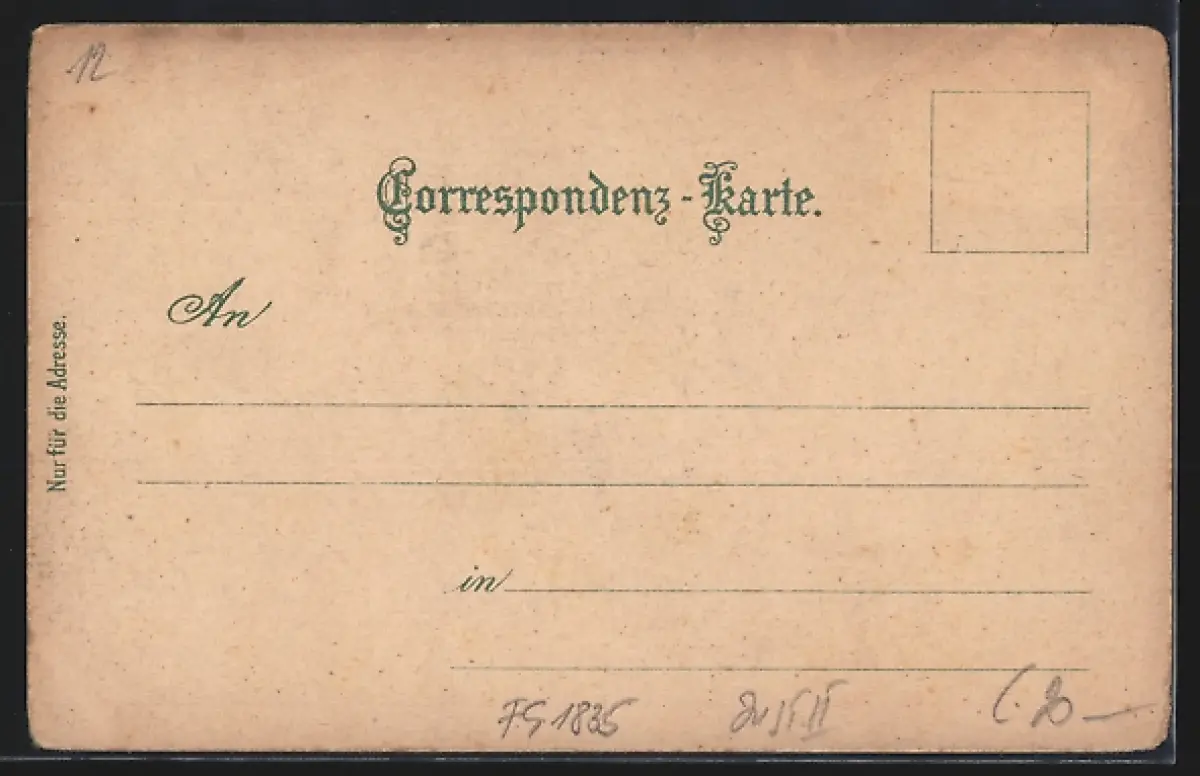 12
Correspondenz-Karte.
An
Nur für die Adresse.
in
FS 1835